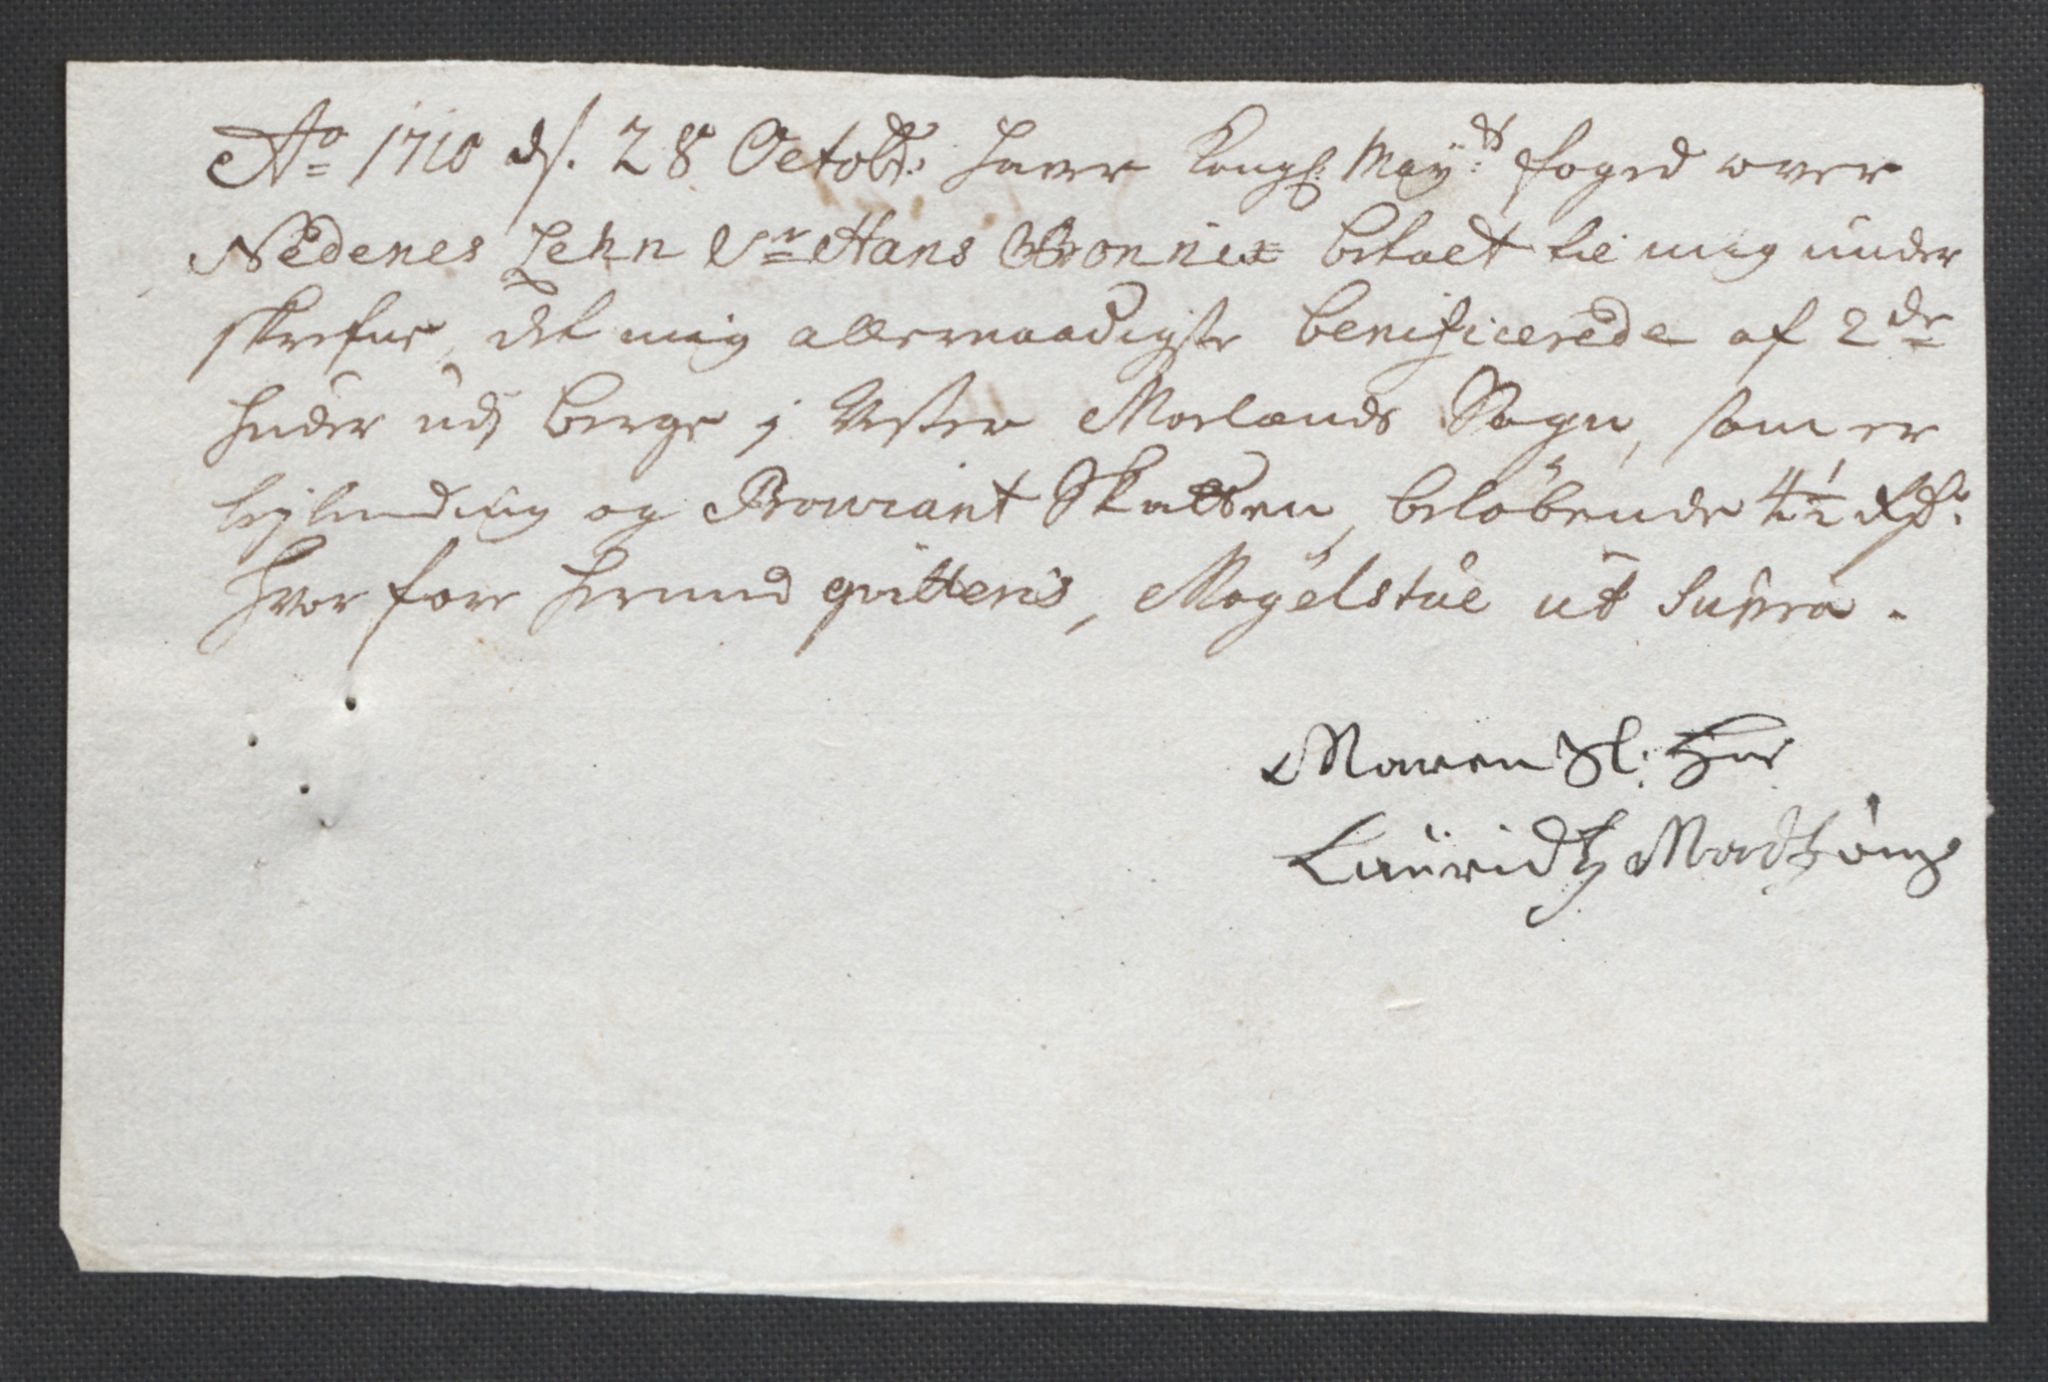 Ao 1710 ds. 28 Octobr: haver Kongl: May:ts foged over
Nedenes Lehn Sr Hans Bronnix betalt til mig under
skrefne, det mig allernaadigste benificerede af 2de
huder udj Berge j Vester Molands Sogn, som er
leylending og Proviant Skatten, beløbende 4 1/2 Rdr.
hvor fore hermed qvitteris, Mogelstue ut supra.
Maren Sl: Her
Lauridtz Madtzøns